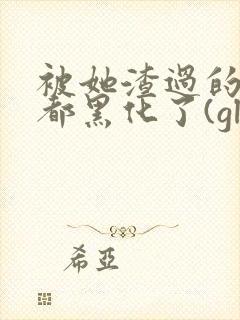 被她渣過的
都黑化了(gl
希亞